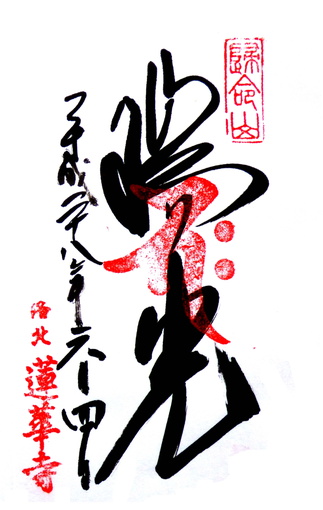 歸命山
光
平成二十八年六月四日
洛北
蓮華寺